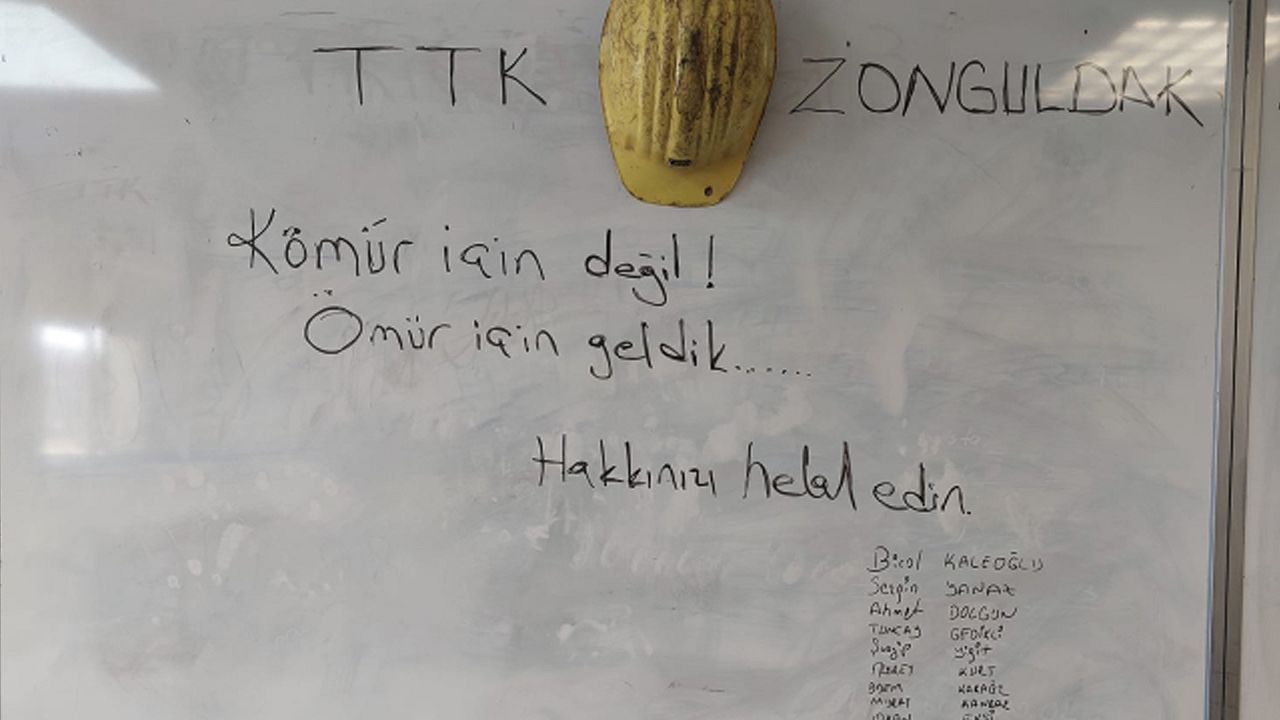 TTK ZONGULDAK
Kömür için değil!
Ömür için geldik......
Hakkınızı helal edin.
Birol KALEOĞLU
Sezgin
Ahmet DOLGUN
TUNCAY GEDİKLİ
Yiğit
KURT
MURAT